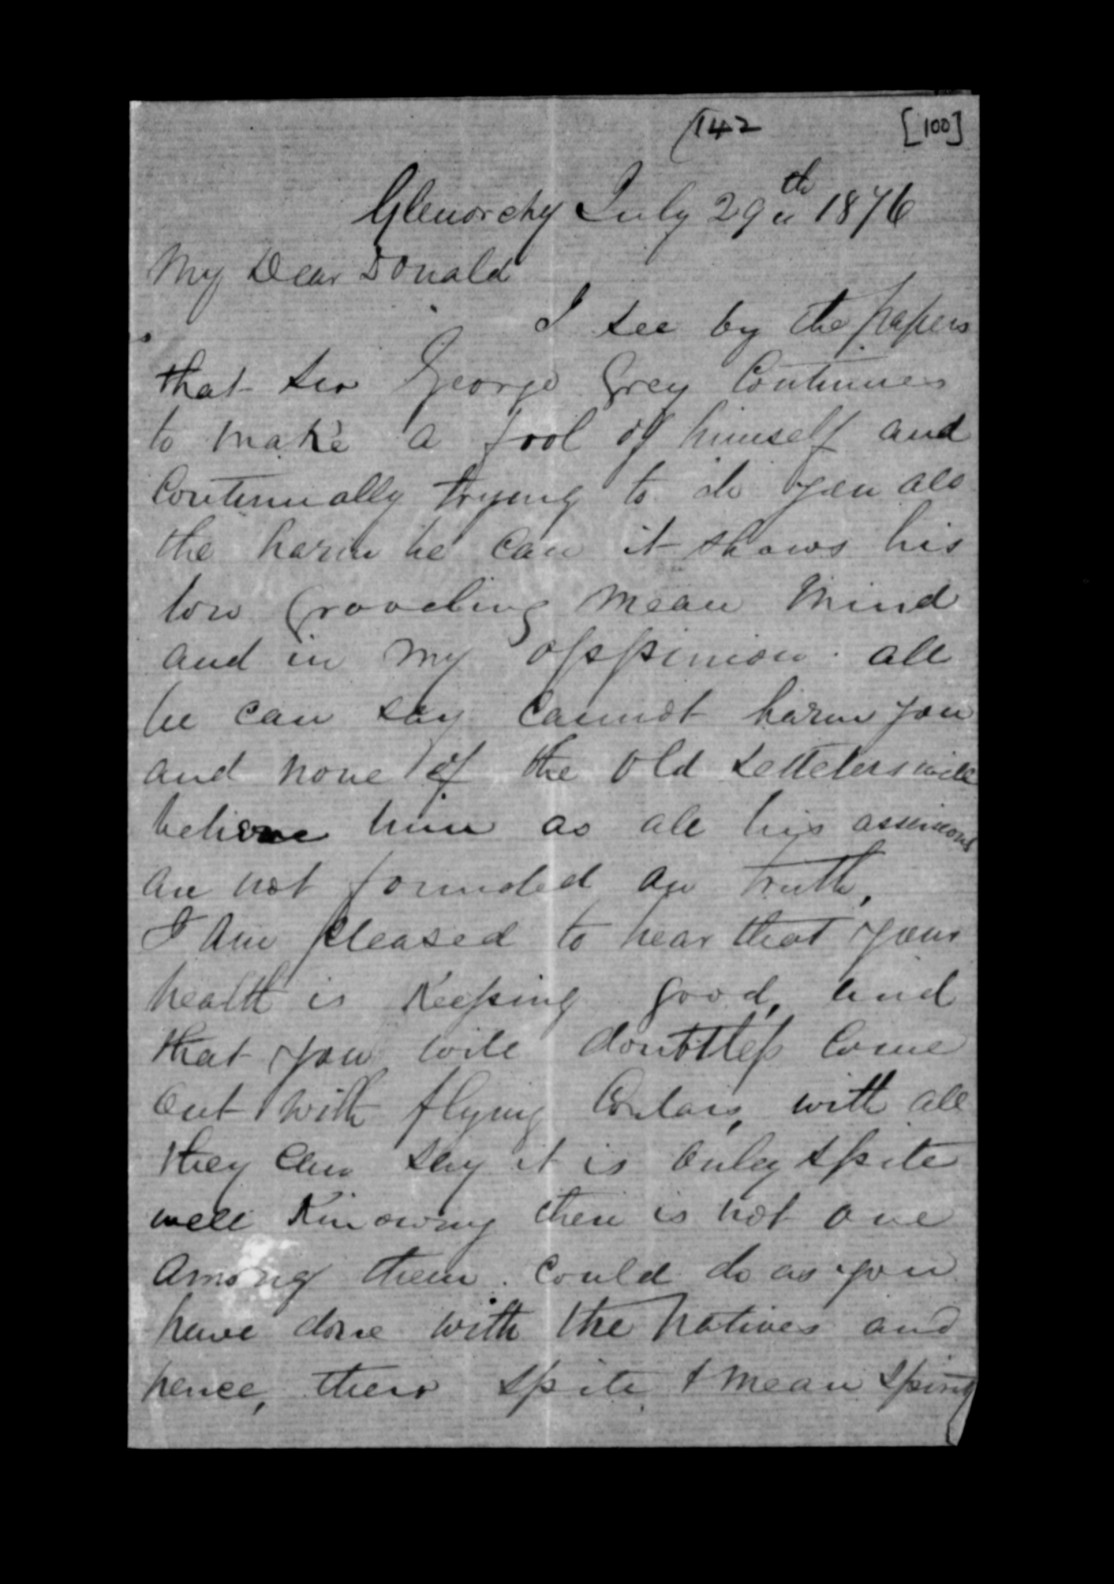 (142 [100]
Glenorchy July 29th 1876
My Dear Donald
I see by the papers
that Sir George Grey Continues
to make a fool of himself and
Continually trying to do you all
the harm he can it shows his
low Grooveling mean Mind
and in my oppinion all
he can say cannot harm you
and none of the Old Settelers will
believe him as all his
are not founded on truth,
I Am pleased to hear that your
health is Keeping good, and
that you will doubtless Come
out with flying Coulars, with all
they can say it is onley spite
well Knowing their is not one
Among them. Could do as you
have done with the Natives and
hence, their spite, & mean